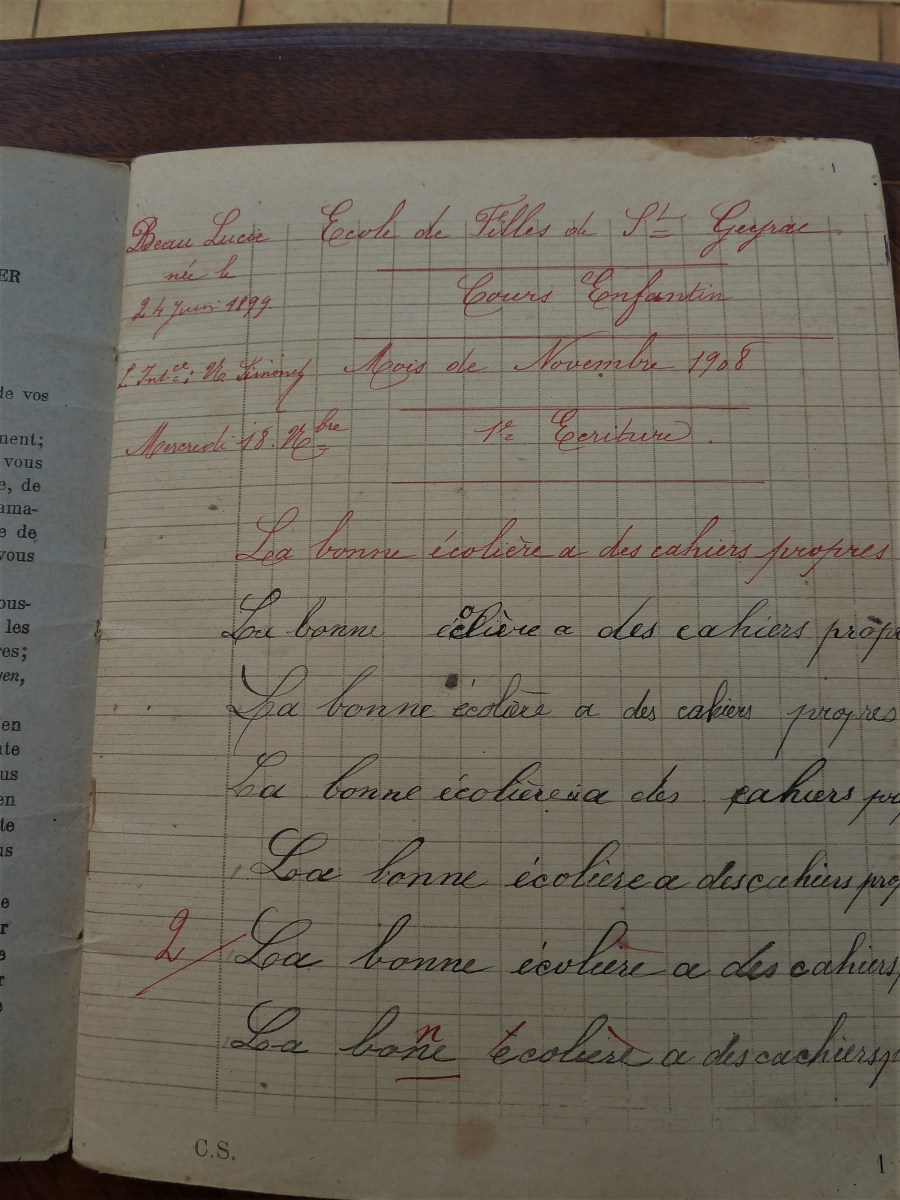 ER
de vos
ment;
vous
e, de
ama-
e de
vous
ous-
les
res;
yen,
en
te
us
en
te
us
e
r
e
r
1
Beau Lucie
née le
24 Juin 1899
L'Intce: N. Simonet
Mercredi 18. Nbre
Ecole de Filles de St Geyrac
Cours Enfantin
Mois de Novembre 1908
1e Ecriture.
La bonne écolière a des cahiers propres
La bonne écolière a des cahiers propr
La bonne écolière a des cahiers propres
La bonne écolière a des cahiers pro
La bonne écolière a des cahiers prop
2/ La bonne écolière a des cahiers
n
La bone écolière a des cachiers p
C.S.
1